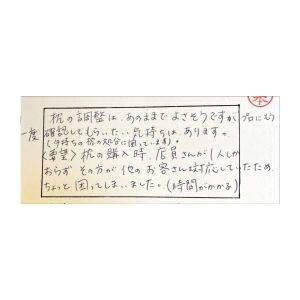 枕の調整は、あのままでよさそうですが プロにもう
一度 確認してもらいたい気持ちはあります。
(手持ちの枕の処分に困っています)。
<要望> 枕の購入時、店員さんが1人しか
おらず その方が他のお客さん対応していたため、
ちょっと困ってしまいました。(時間がかかる)